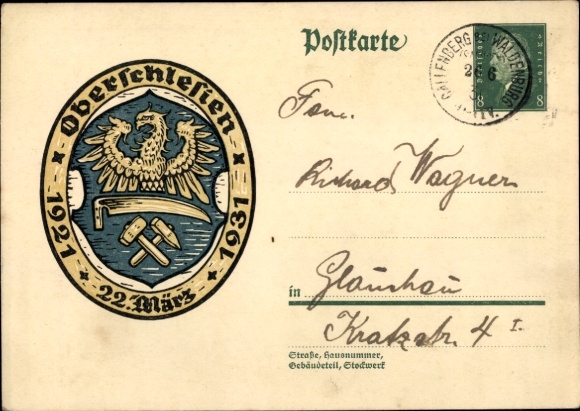 Oberschlesien
1921
1931
22. März
Postkarte
CALLENBERG WALDENBURG
8 8
Fam.
Richard Wagner
in Glauchau
Kratzstr. 4 I.
Straße, Hausnummer,
Gebäudeteil, Stockwerk